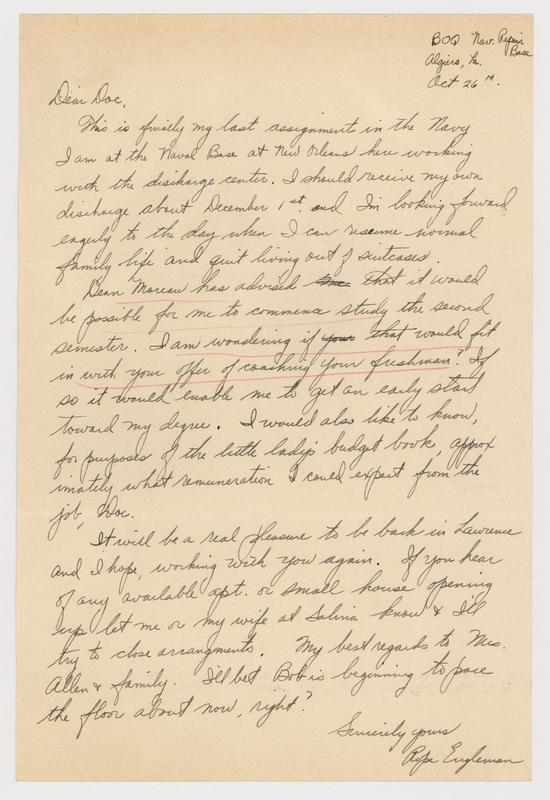 BOQ Nav. Repair
Base
Algiers, La.
Oct 26th.
Dear Doc,
This is finally my last assignment in the Navy
I am at the Naval Base at New Orleans here working
with the discharge center. I should receive my own
discharge about December 1st. and I'm looking forward
eagerly to the day when I can resume normal
family life and quit living out of suitcases.
Dean Moreau has advised that it would
be possible for me to commence study the second
semester. I am wondering if your that would fit
in with your offer of coaching your freshman? If
so it would enable me to get an early start
toward my degree. I would also like to know,
for purposes of the little lady's budget book, approx
imately what remuneration I could expect from the
job, Doc.
It will be a real pleasure to be back in Lawrence
and I hope, working with you again. If you hear
of any available apt. or small house opening
up let me or my wife at Salina know & I'll
try to close arrangments. My best regards to Mrs.
Allen & family. I'll bet Bob is beginning to pace
the floor about now, right?
Sincerely yours
Rope Engleman